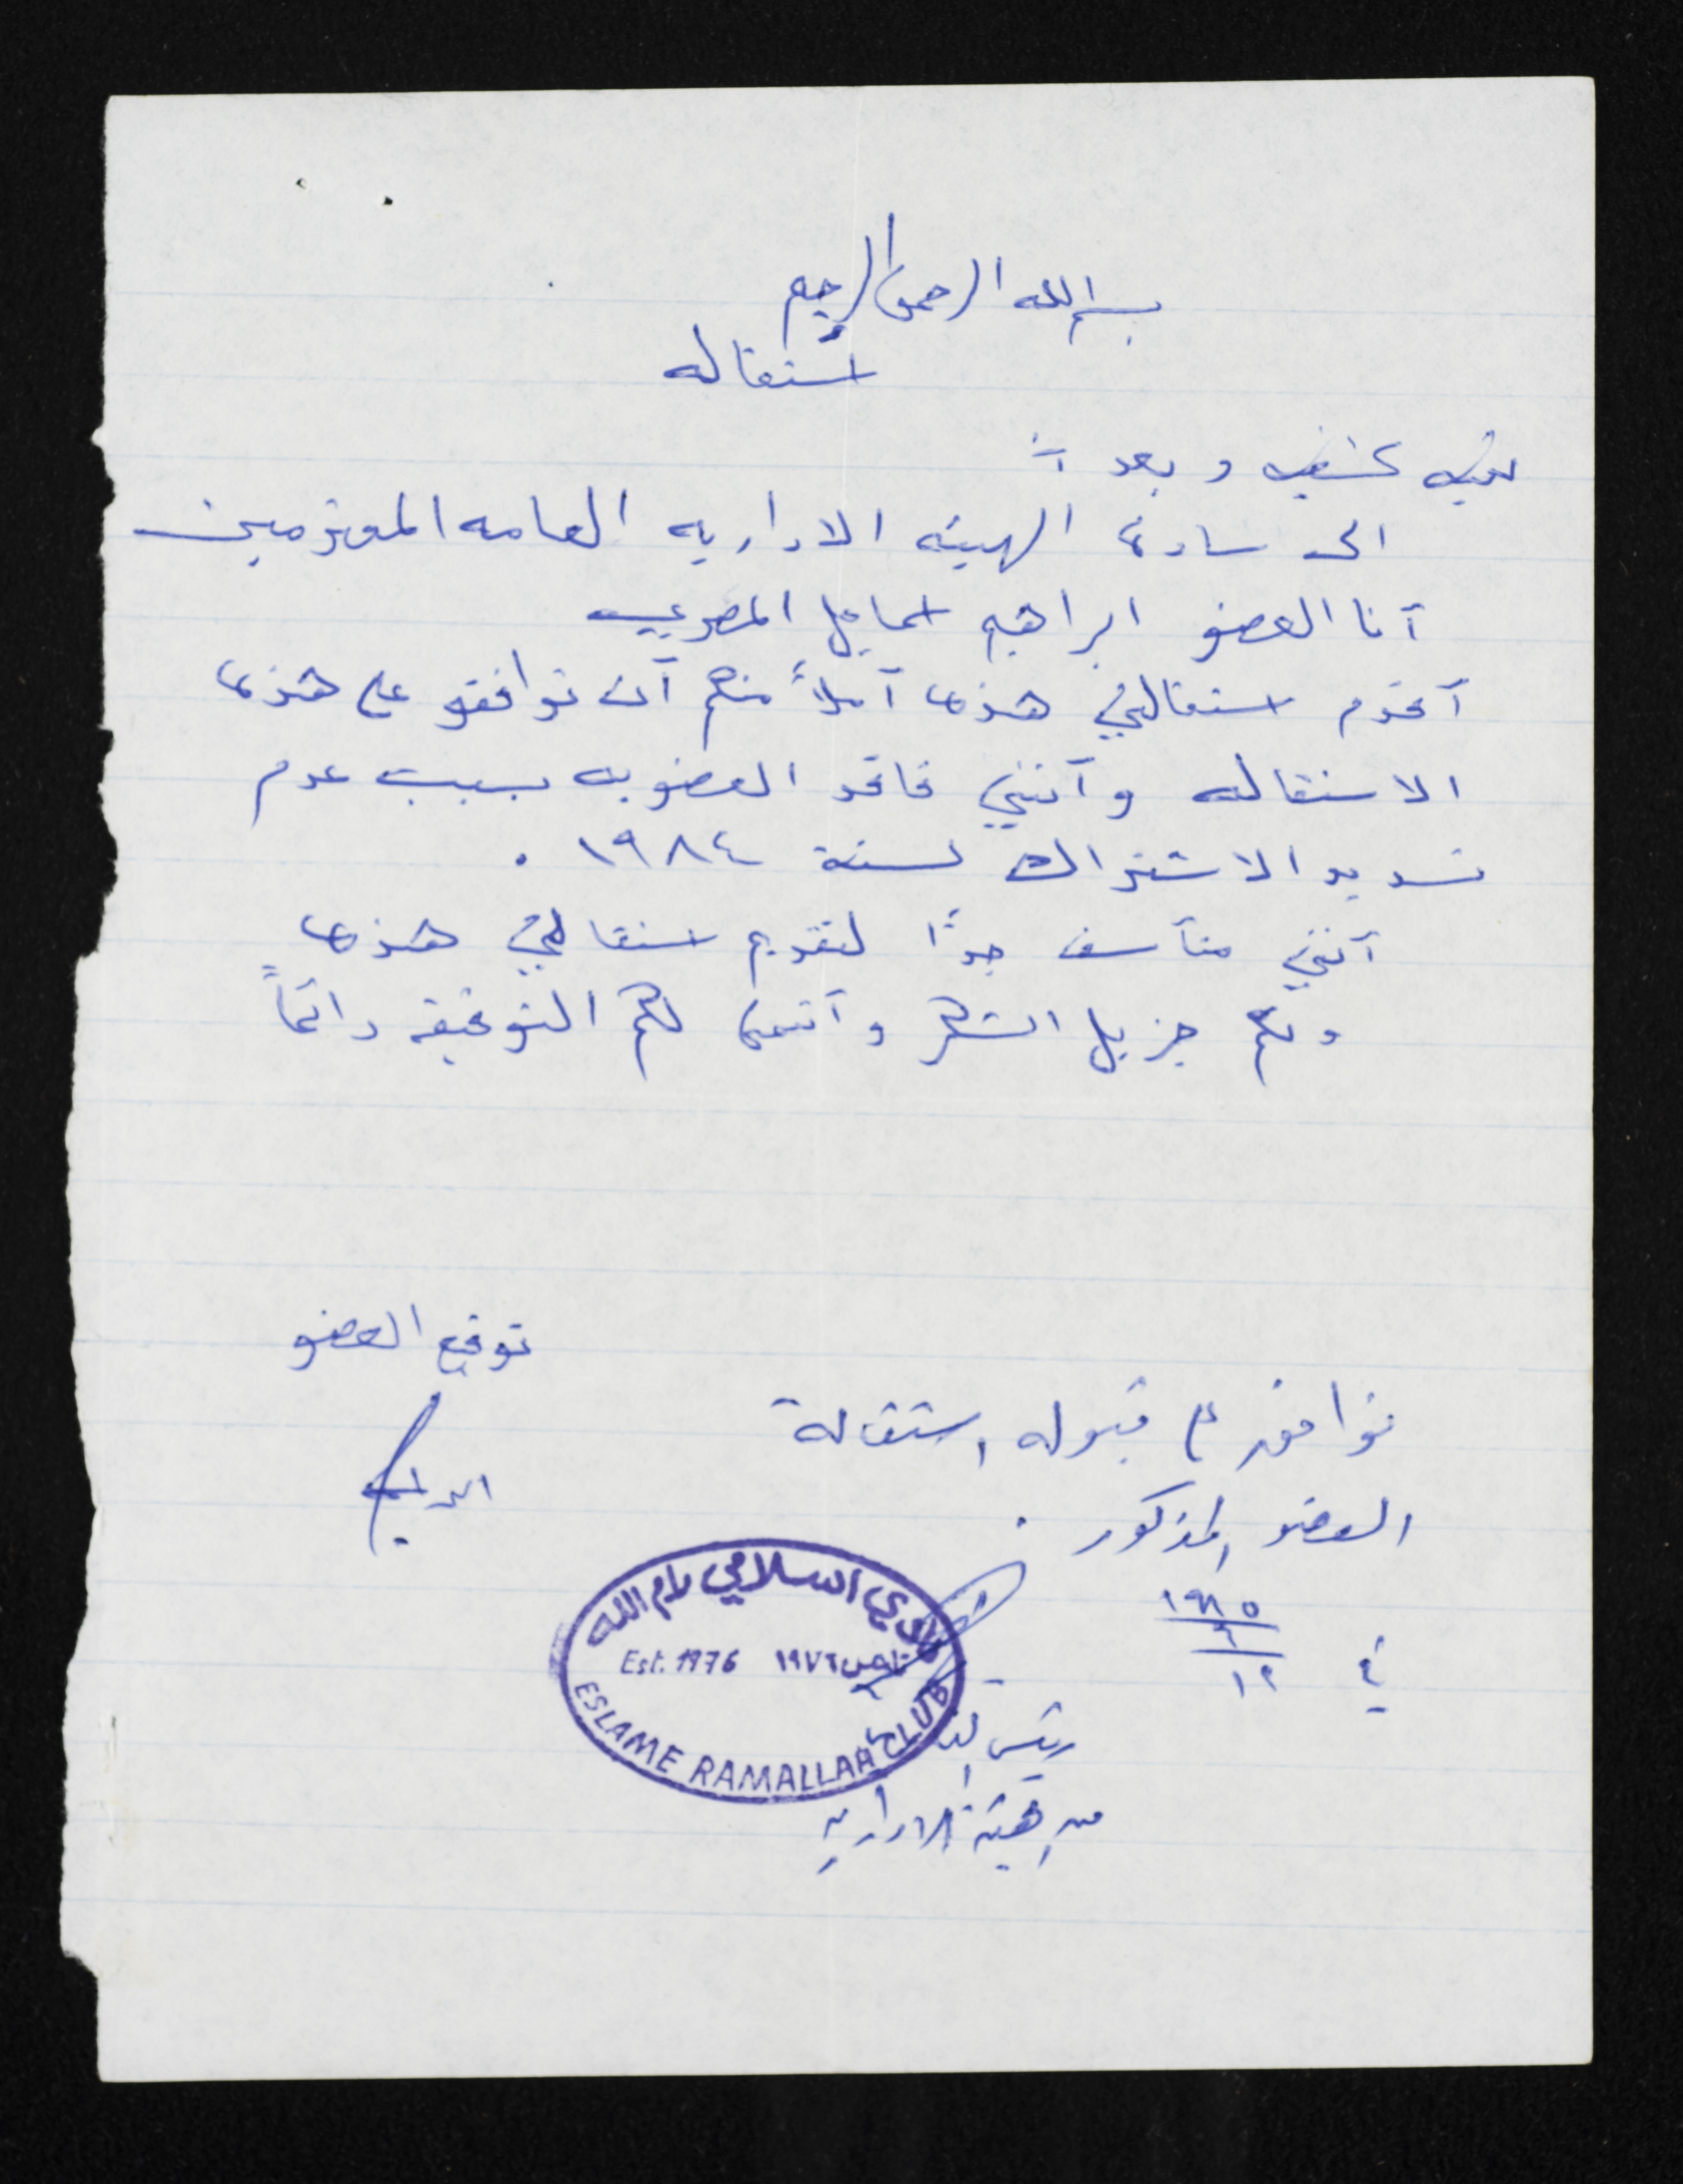 بسم الله الرحمن الرحيم
استقاله
تحيه كشفيه وبعد :-
الى سادة الهيئه الاداريه العامه المحترمين
أنا العضو ابراهيم اسماعيل المصري
أقدم استقالتي هذه آملاً منكم أن توافقو على هذه
الاستقاله وأنني فاقد العضويه بسبب عدم
تسديد الاشتراك لسنة ١٩٨٤ .
أنني متأسف جداً لتقديم استقالتي هذه
ولكم جزيل الشكر وأتمنى لكم التوفيق دائماً
توقيع العضو
نوافق على قبول استقالة
العضو المذكور .
في ١٩٨٥
١٢
النادي اسلامي رام الله
Est. 1976 تأسس ١٩٧٦
ESLAME RAMALLAH CLUB
رئيس
الهيئة الادارية